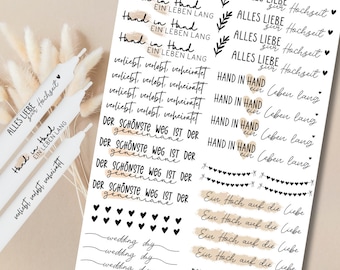 Hand in Hand
EIN LEBEN LANG
Hand in Hand
EIN LEBEN LANG
Hand in Hand
EIN LEBEN LANG
verliebt, verlobt, verheiratet
verliebt, verlobt, verheiratet
verliebt, verlobt, verheiratet
verliebt, verlobt, verheiratet
DER SCHÖNSTE WEG IST DER
gemeinsame
DER SCHÖNSTE WEG IST DER
gemeinsame
DER SCHÖNSTE WEG IST DER
gemeinsame
DER SCHÖNSTE WEG IST DER
gemeinsame
wedding day
wedding day
wedding day
ALLES LIEBE
zur Hochzeit
ALLES LIEBE
zur Hochzeit
ALLES LIEBE
zur Hochzeit
HAND IN HAND
ein Leben lang
HAND IN HAND
ein Leben lang
HAND IN HAND
ein Leben lang
HAND IN HAND
ein Leben lang
Ein Hoch auf die Liebe
Ein Hoch auf die Liebe
Ein Hoch auf die Liebe
Ein Hoch auf die Liebe
ALLES LIEBE
zur Hochzeit
Hand in Hand
EIN LEBEN LANG
verliebt, verlobt, verheiratet